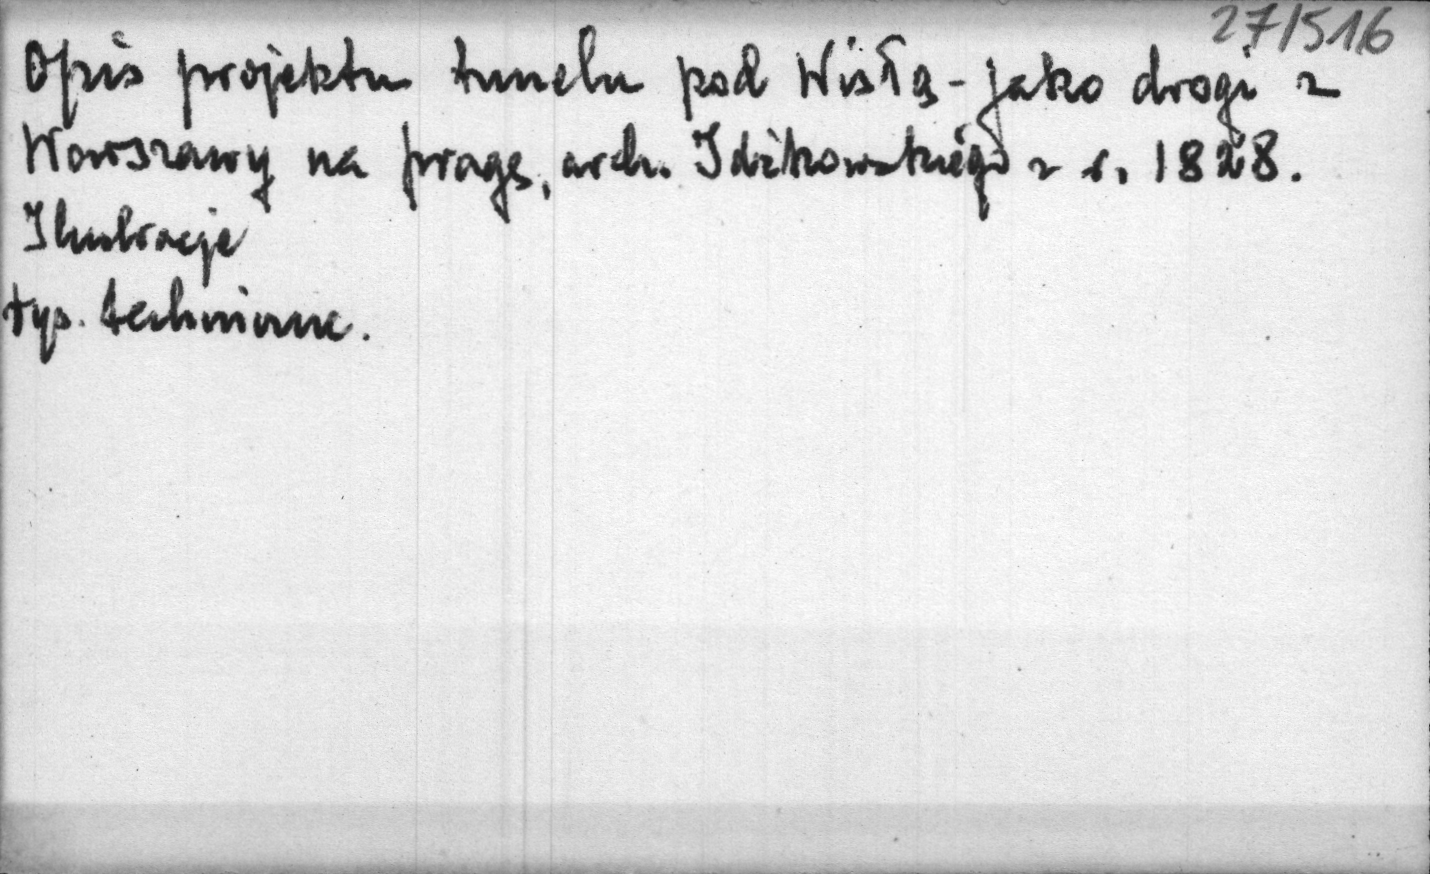 27/516
Opis projektu tunelu pod Wisłą - jako drogi z
Warszawy na pragę, arch. Idźkowskiego z r. 1828.
Ilustracje
rys. techniczne.